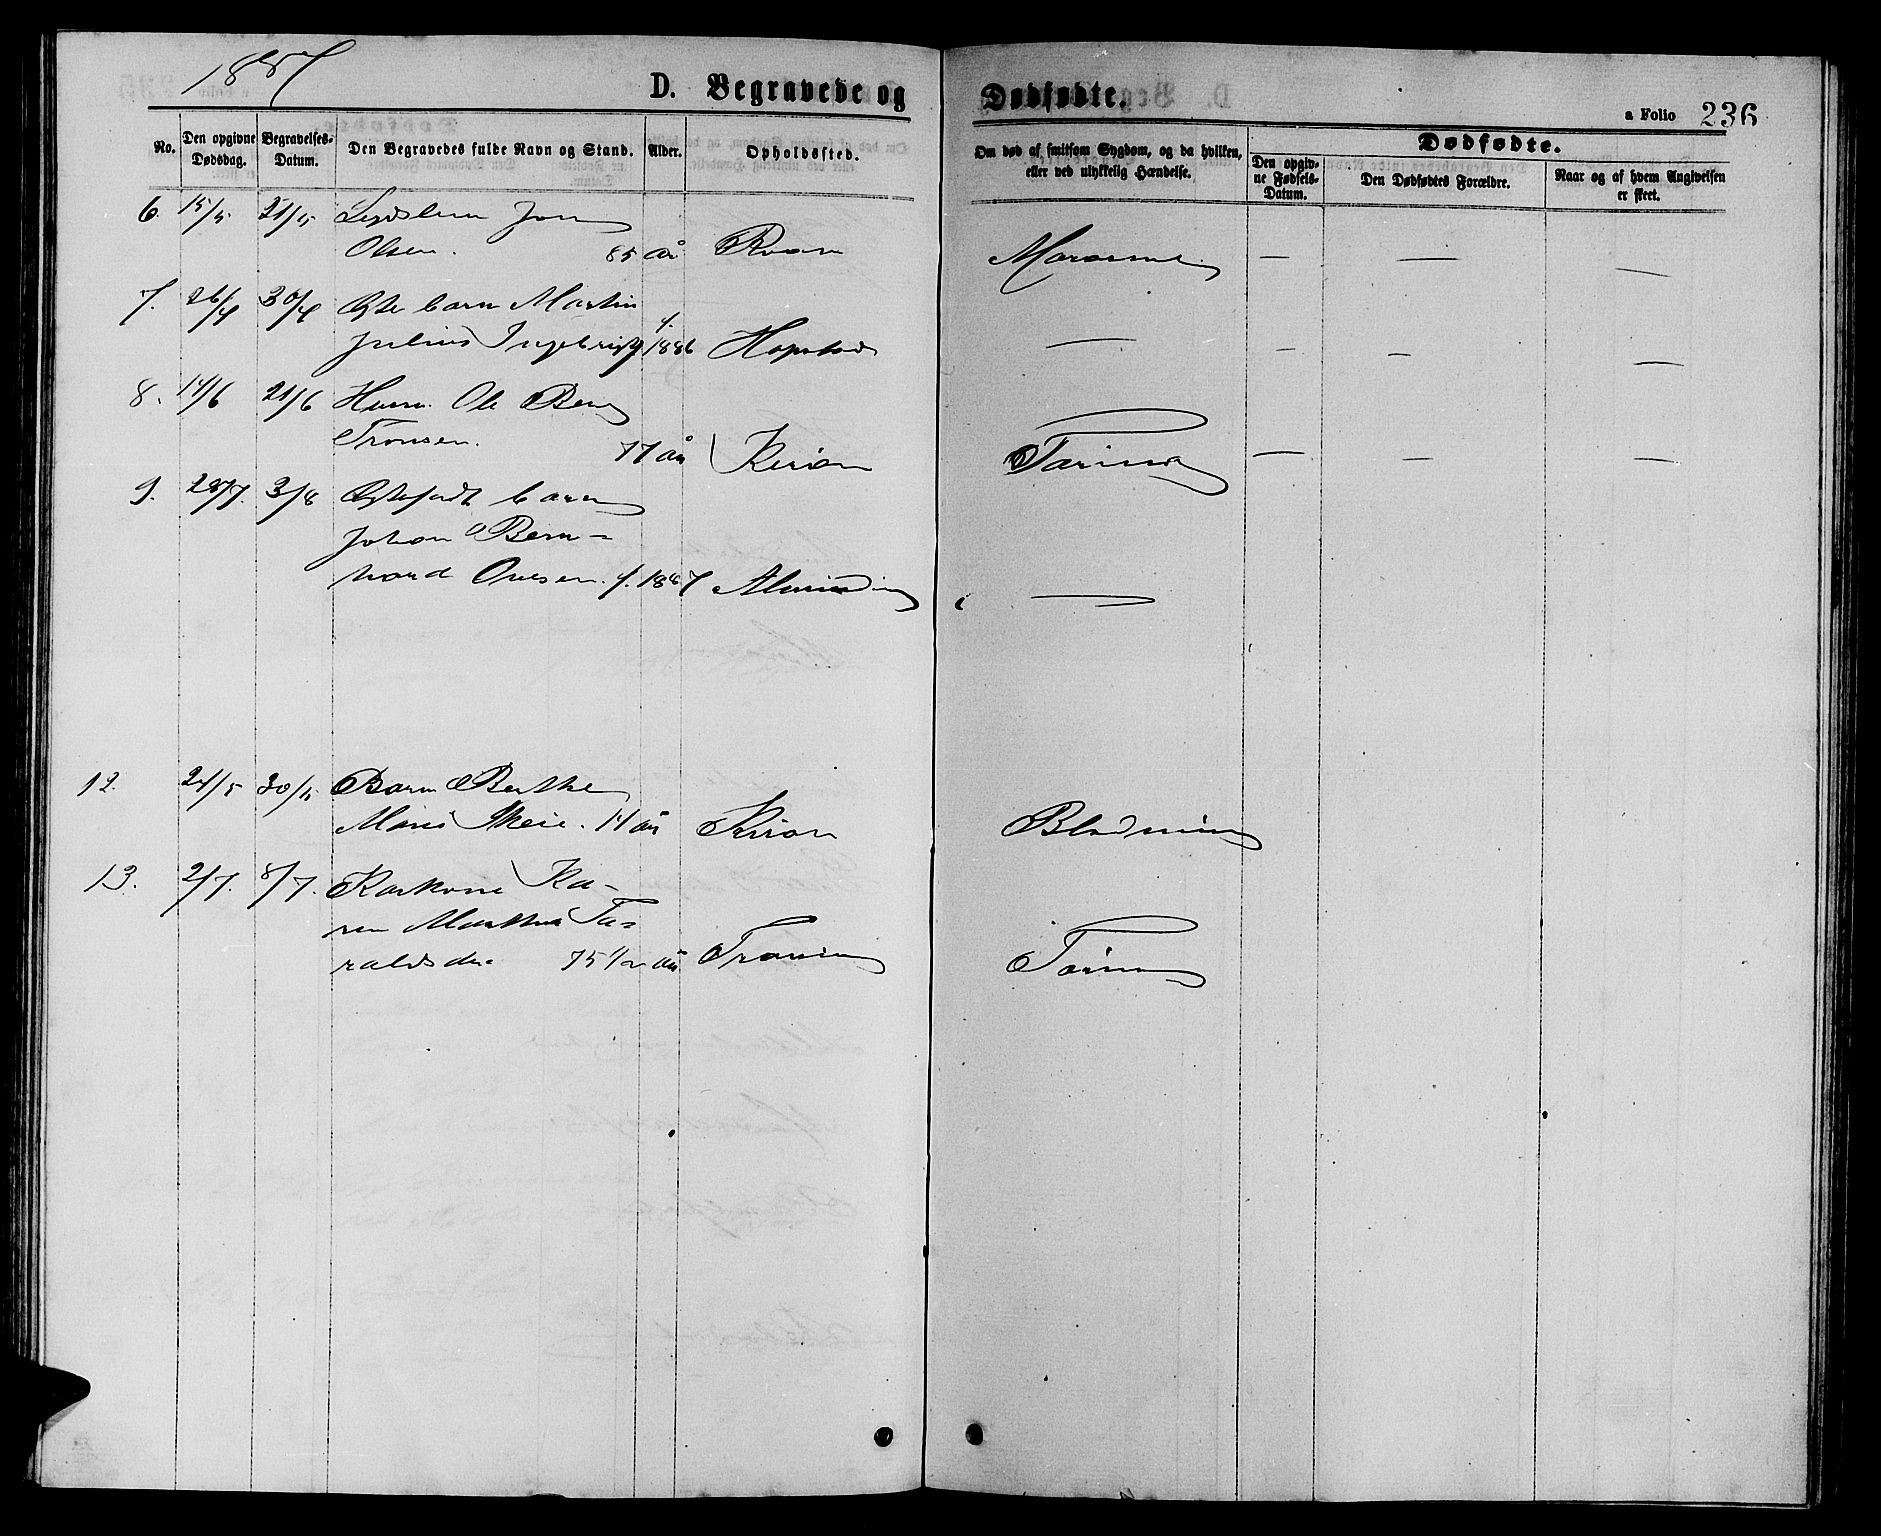 1887
D. Begravede og Dødfødte.
a Folio 236
No.
Den opgivne Dødsdag.
Begravelses-Datum.
Den Begravedes fulde Navn og Stand.
Alder.
Opholdssted.
Om død af smitsom Sygdom, og da hvilken,
eller ved ulykkelig Hændelse.
Dødfødte.
Den opgiv-
ne Fødsels-
Datum.
Den Dødfødtes Forældre.
Naar og af hvem Angivelsen
er skeet.
6. 15/5 21/5 Jon
Olsen. 85 år Roan Marasme — — —
7. 26/4 30/4 Ægte barn Martin
Julius f. 1886 Hopstad — — — —
8. 14/6 21/6 Ole
Tronsen. 77 år Kiran Tæring — — —
9. 28/7. 3/8 Ægtefødt barn
Johan Bern-
hard Ovesen. f. 1887 Almending —
12. 24/5 30/5 Barn Berthe
Marie Skeie. 14 år Kiran Blødning
13. 2/7. 8/7. Ka-
ren Marthea Ta-
raldsdr. 75 1/2 år Tæring